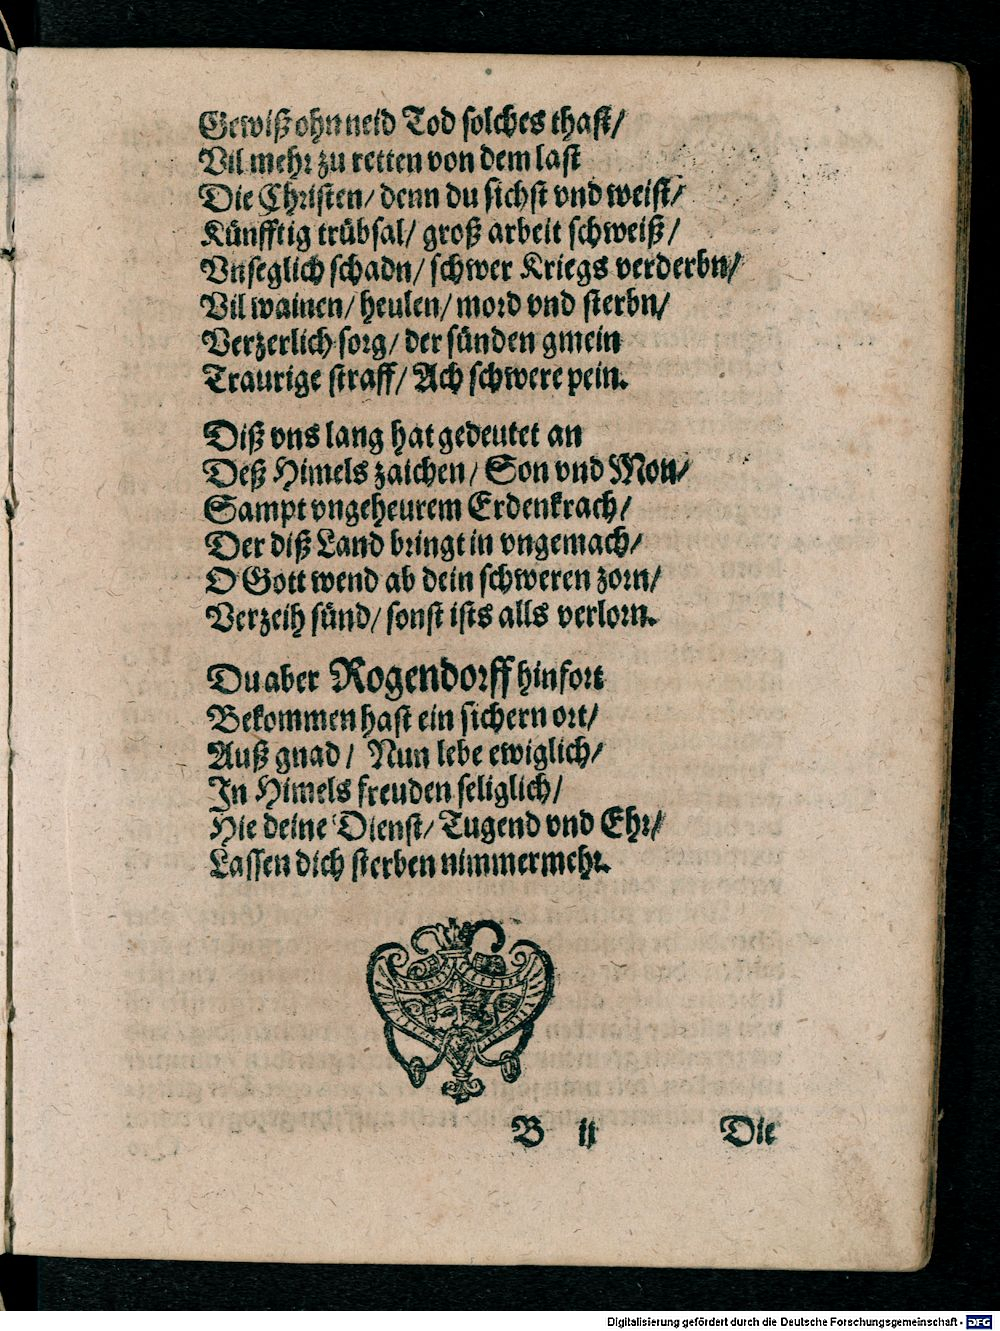 Gewiß ohn neid Tod solches thast/
Vil mehr zu retten von dem last
Die Christen/ denn du sichst vnd weist/
Künfftig trübsal/ groß arbeit schweiß/
Vnseglich schadn/ schwer Kriegs verderbn/
Vil wainen/ heulen/ mord vnd sterbn/
Verzerlich sorg/ der sünden gmein
Traurige straff/ Ach schwere pein.
Diß vns lang hat gedeutet an
Deß Himels zaichen/ Son vnd Mon/
Sampt vngeheurem Erdenkrach/
Der diß Land bringt in vngemach/
O Gott wend ab dein schweren zorn/
Verzeih sünd/ sonst ists alls verlorn.
Du aber Rogendorff hinfort
Bekommen hast ein sichern ort/
Auß gnad/ Nun lebe ewiglich/
In Himels freuden seliglich/
Hie deine Dienst/ Tugend vnd Ehr/
Lassen dich sterben nimmermehr.
B ij Die
Digitalisierung gefördert durch die Deutsche Forschungsgemeinschaft - DFG